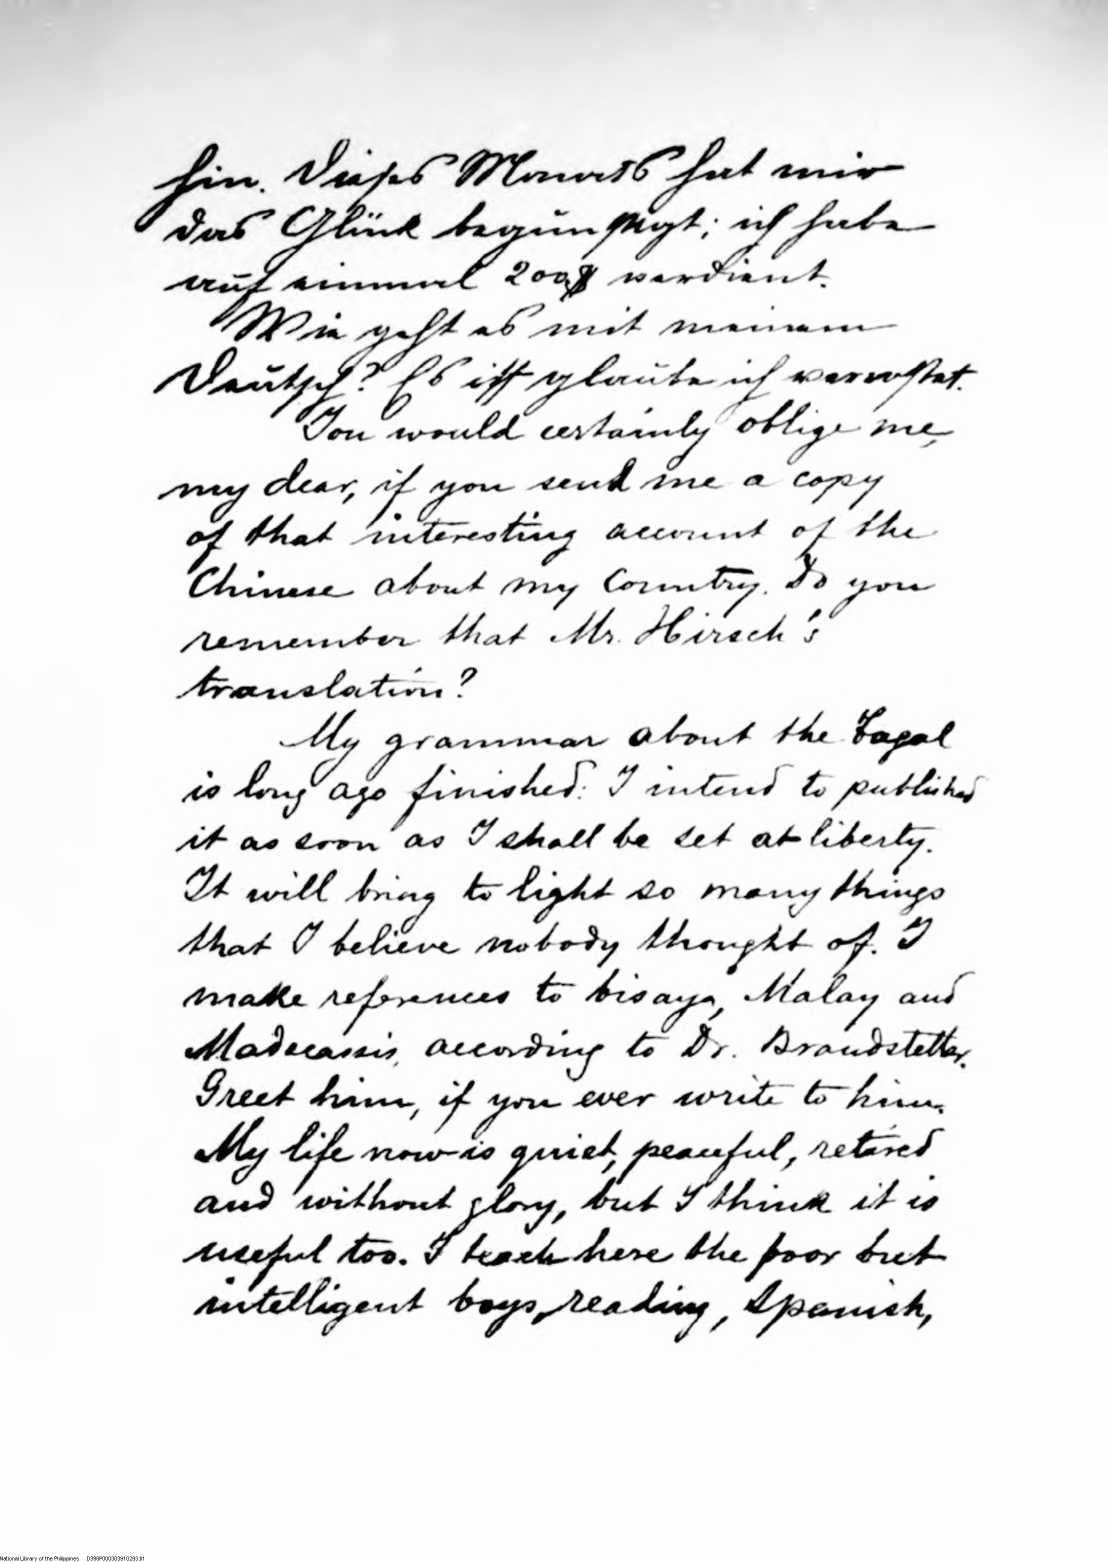 hin. Dieses Monats hat mir
das Glück begünstigt; ich habe
auf einmal 200$ verdient.
Wie geht es mit meinem
Deutsch? Es ist glaube ich verrostet.
You would certainly oblige me,
my dear, if you send me a copy
of that interesting account of the
Chinese about my Country. Do you
remember that Mr. Hirsch's
translation?
My grammar about the Tagal
is long ago finished: I intend to published
it as soon as I shall be set at liberty.
It will bring to light so many things
that I believe nobody thought of. I
make references to bisaya, Malay and
Madecassis, according to Dr. Brandstetter.
Greet him, if you ever write to him.
My life now is quiet, peaceful, retired
and without glory, but I think it is
useful too. I teach here the poor but
intelligent boys, reading, Spanish,
National Library of the Philippines